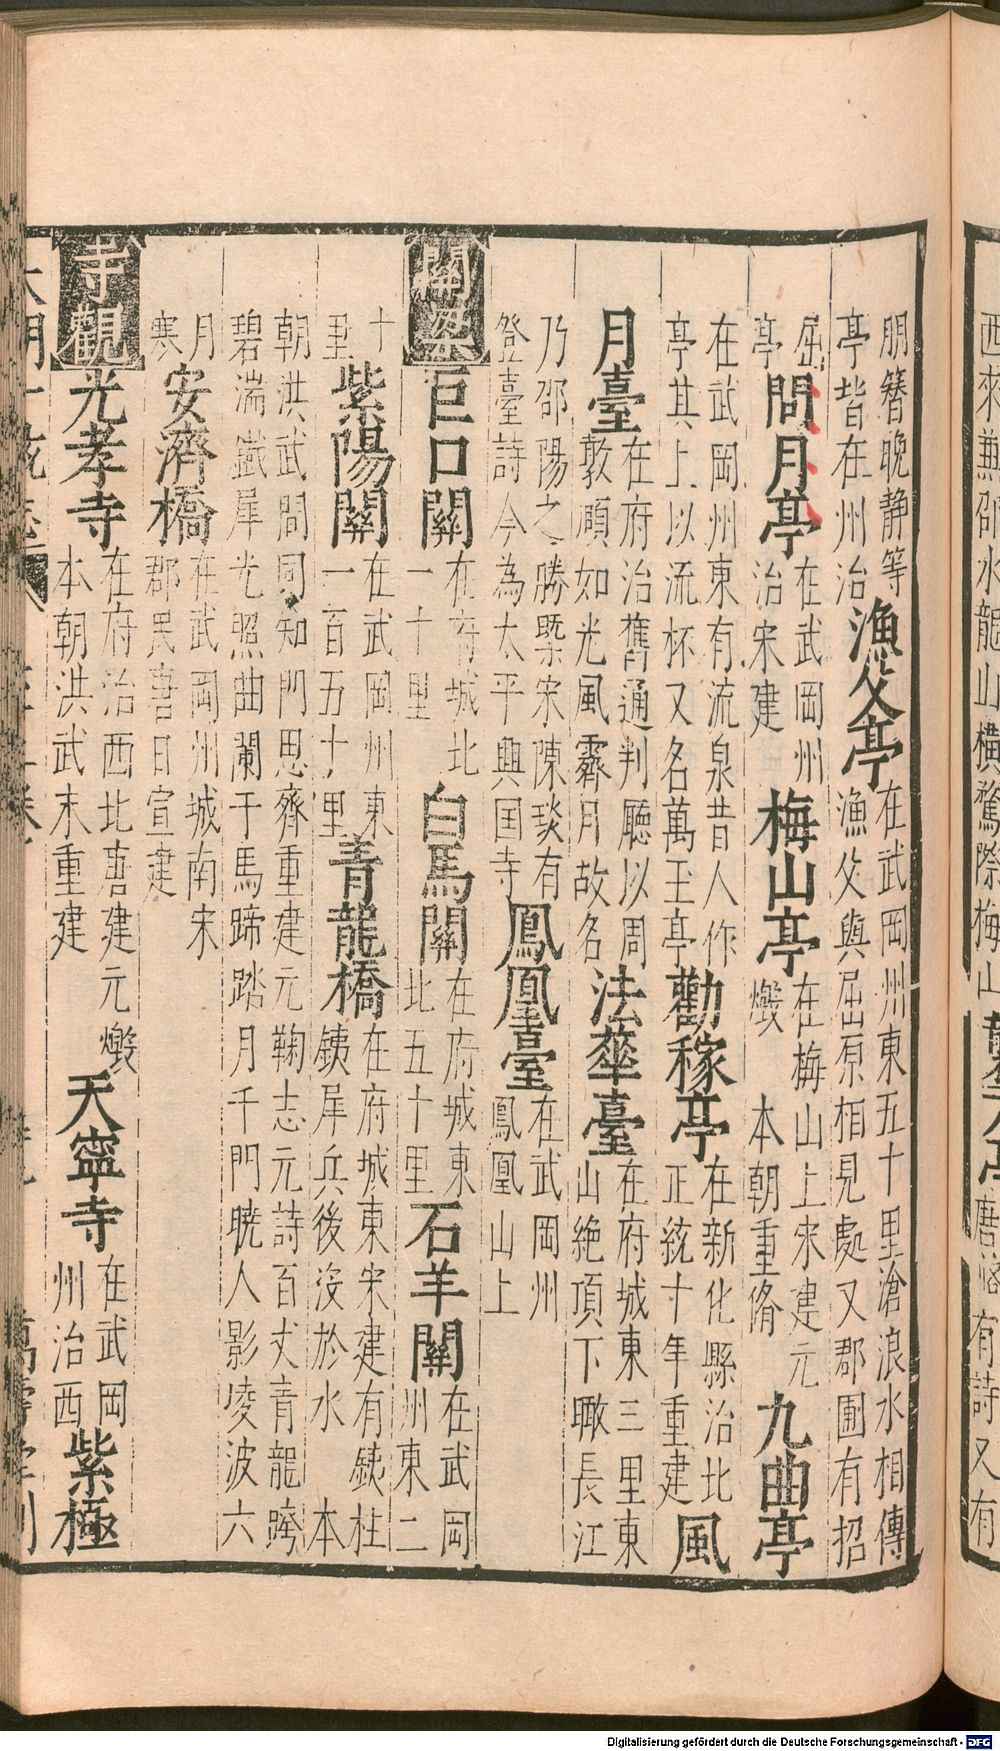 西來兼邵水龍山橫鶩際梅山
唐
有詩又有
朋簪晚靜等
亭皆在州治
漁父亭
在武岡州東五十里滄浪水相傳
漁父與屈原相見處又郡圃有招
屈
亭
問月亭
在武岡州
治宋建
梅山亭
在梅山上宋建元
燬 本朝重脩
九曲亭
在武岡州東有流泉昔人作
亭其上以流杯又名萬玉亭
勸稼亭
在新化縣治北
正統十年重建
風
月臺
在府治舊通判廳以周
敦頤如光風霽月故名
法華臺
在府城東三里東
山絶頂下瞰長江
乃邵陽之勝槩宋陳琰有
登臺詩今為太平興国寺
鳳凰臺
在武岡州
鳳凰山上
關梁
巨口關
在府城北
一十里
白馬關
在府城東
北五十里
石羊關
在武岡
州東二
十
里
紫陽關
在武岡州東
一百五十里
青龍橋
在府城東宋建有鐵柱
鐵犀兵後沒於水 本
朝洪武間同知門思齊重建元鞠志元詩百丈青龍跨
碧湍鐵犀光照曲闌干馬蹄踏月千門曉人影凌波六
月
寒
安濟橋
在武岡州城南宋
郡民唐日宣建
寺觀
光孝寺
在府治西北唐建元燬
本朝洪武末重建
天寧寺
在武岡
州治西
紫極
Digitalisierung gefördert durch die Deutsche Forschungsgemeinschaft - DFG